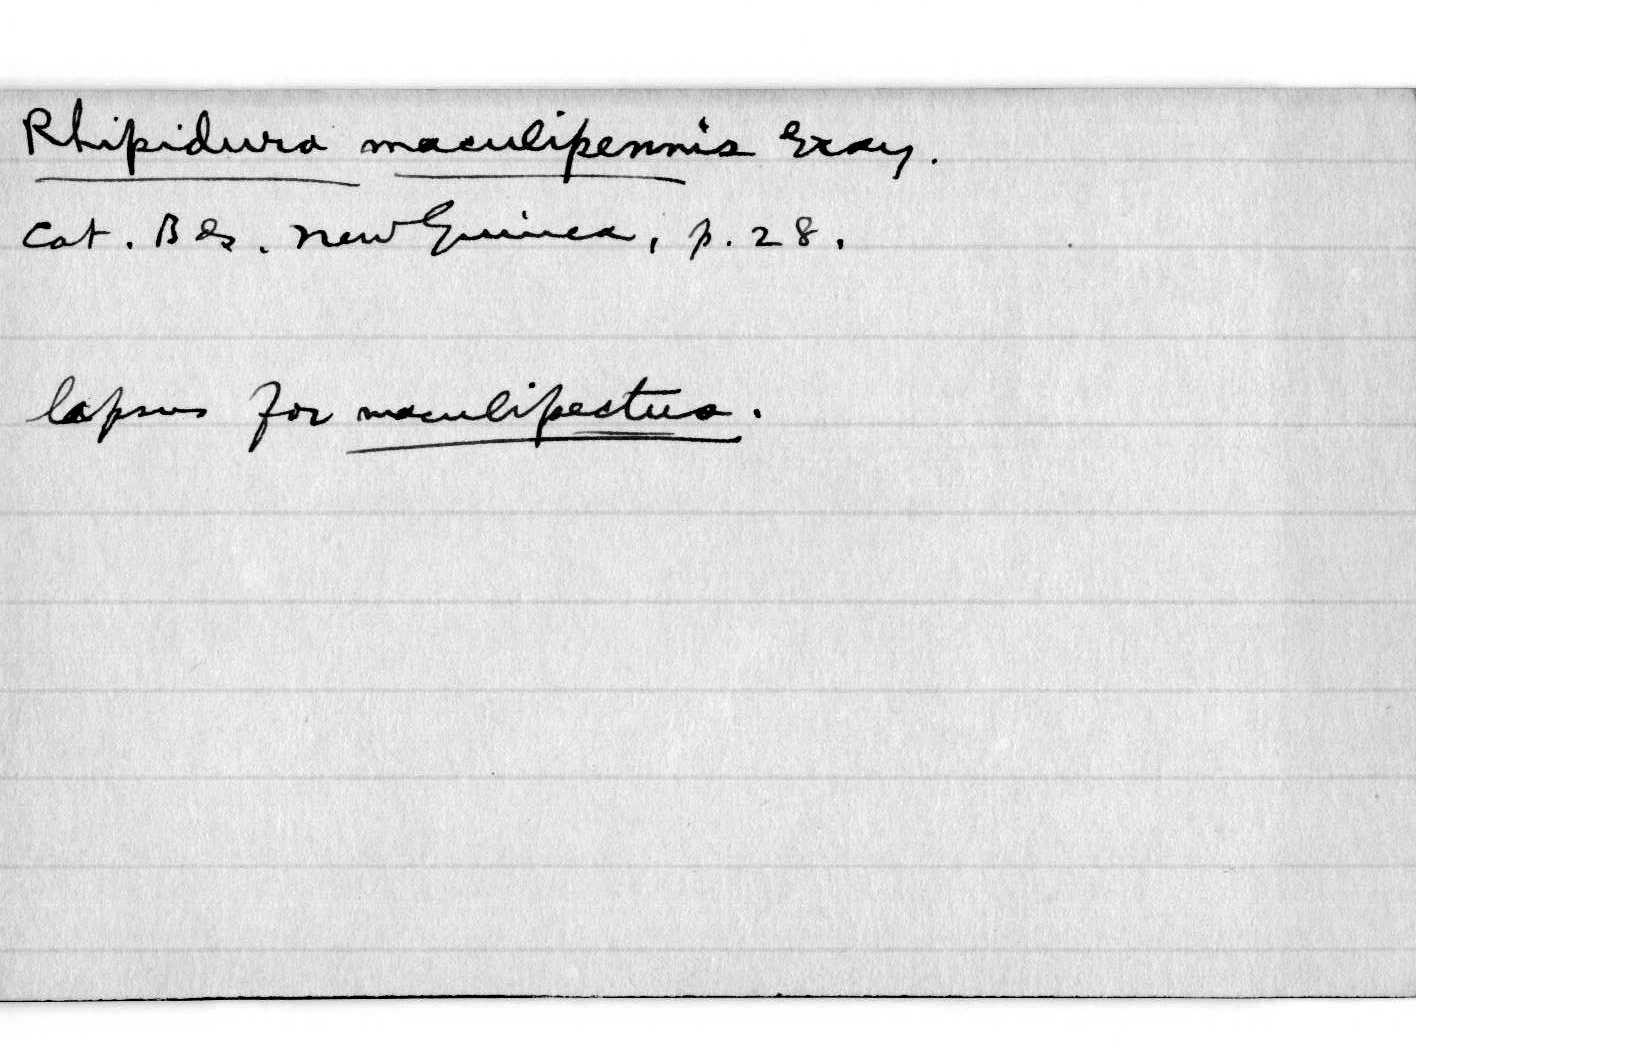 Rhipidura maculipennis Gray.
Cat. Bds. New Guinea, p. 28.
lapsus for maculipectus.